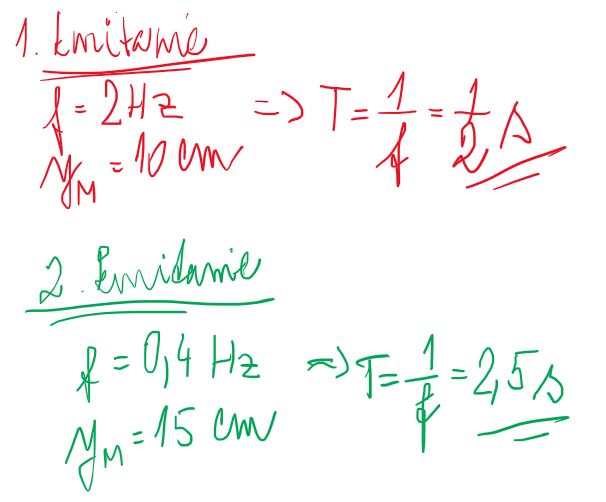 1. kmitanie
f = 2 Hz => T = 1/f = 1/2 s
y_M = 10 cm
2. kmitanie
f = 0,4 Hz => T = 1/f = 2,5 s
y_M = 15 cm